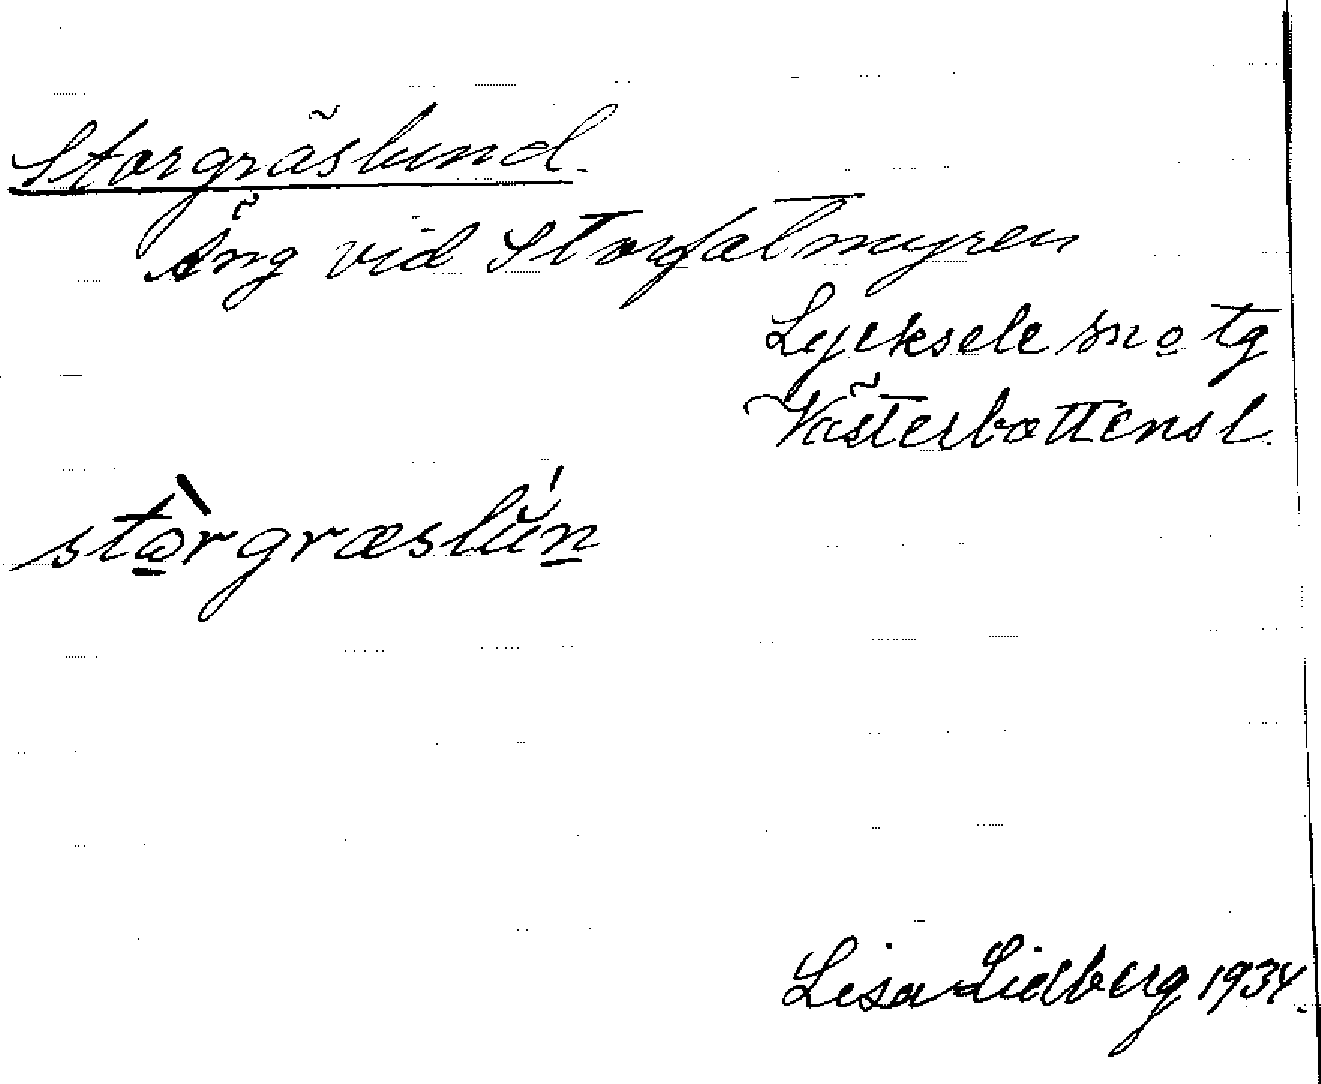 Storgräslund.
Äng vid Storfalmyren
Lycksele sn o tg
Västerbottens l.
stò̱rgræslŭ́n̲
Lisa Lidberg 1934.